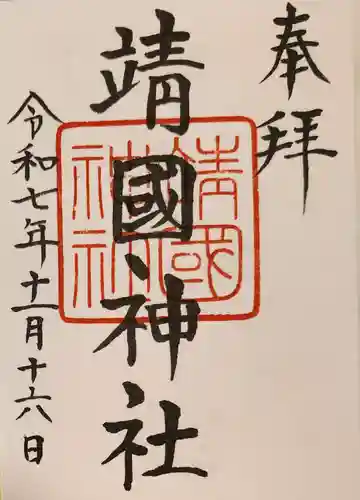 奉拝
靖國神社
靖國
神社
令和七年十一月十六日